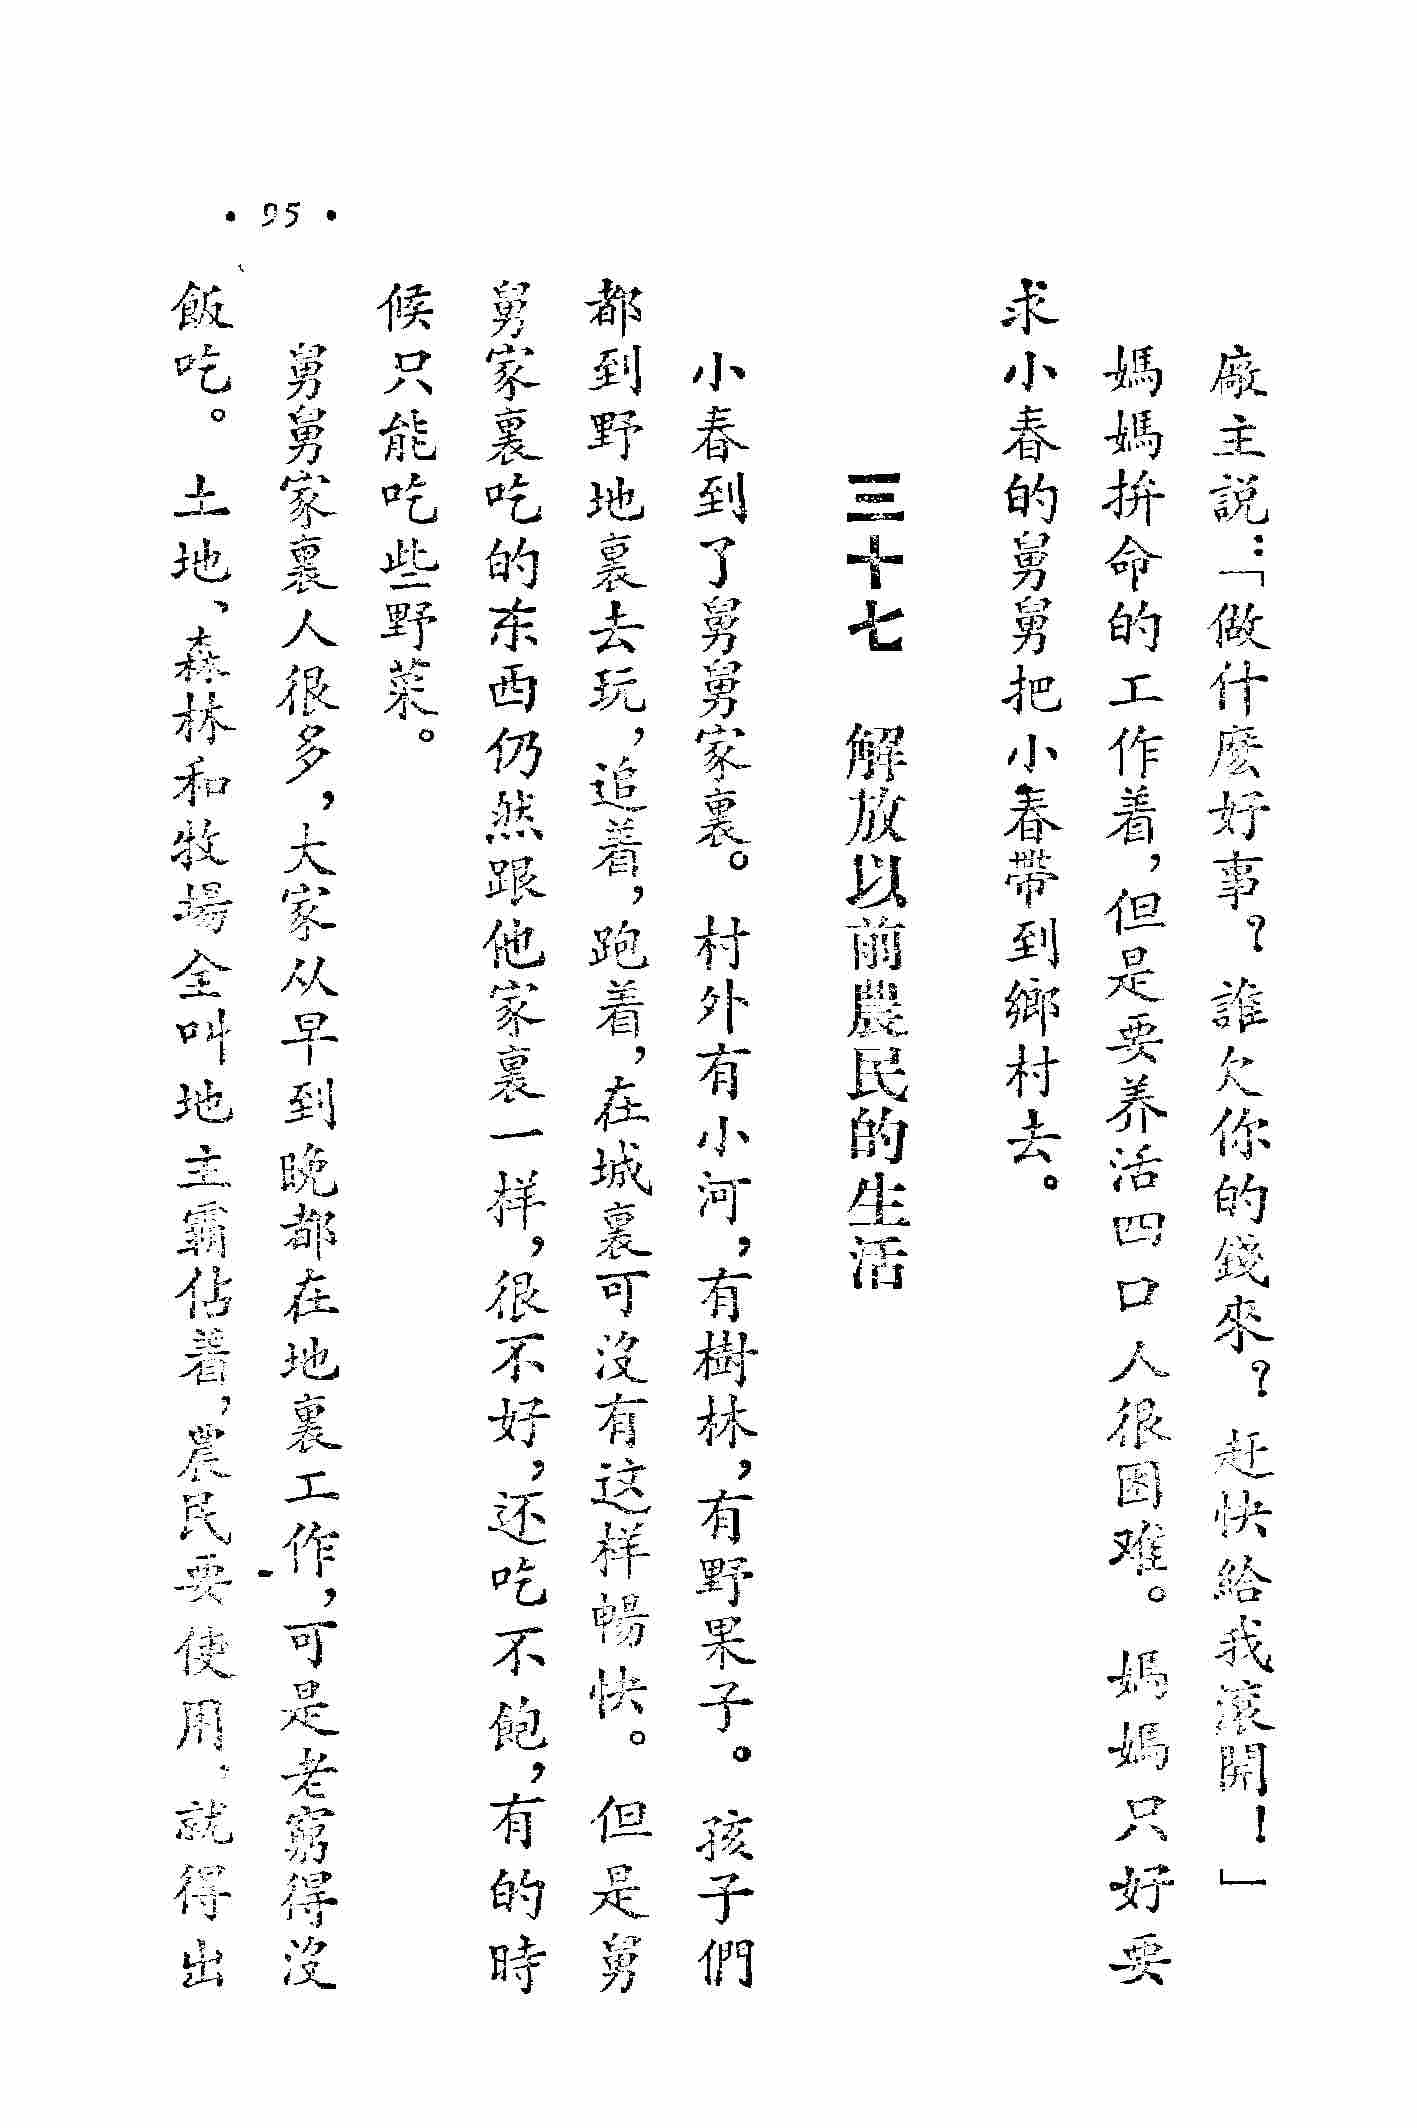 廠主説：「做什麽好事？誰欠你的錢來？赶快給我滾開！」
媽媽拚命的工作着，但是要养活四口人很困难。媽媽只好要
求小春的舅舅把小春帶到鄉村去。
三十七　解放以前農民的生活
小春到了舅舅家裏。村外有小河，有樹林，有野果子。孩子們
都到野地裏去玩，追着，跑着，在城裏可沒有这样暢快。但是舅
舅家裏吃的东西仍然跟他家裏一样，很不好，还吃不飽，有的時
候只能吃些野菜。
舅舅家裏人很多，大家从早到晚都在地裏工作，可是老窮得沒
飯吃。土地、森林和牧場全叫地主霸佔着，農民要使用，就得出
• 95 •